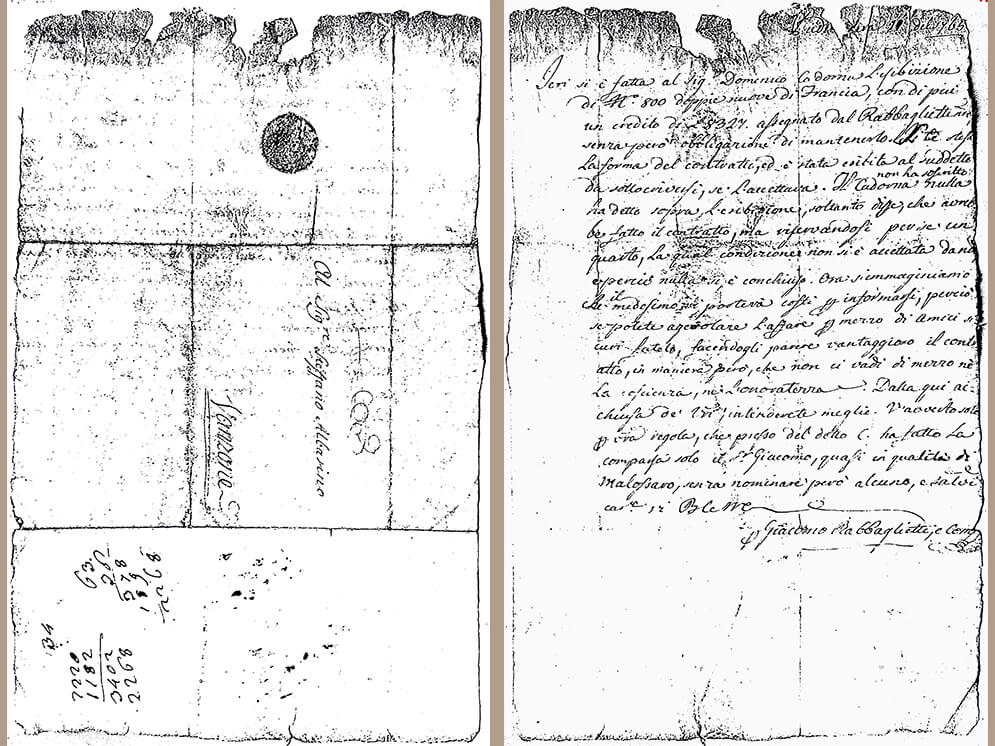 Al Sig.re Steffano Allasino
Vanzone
63
36
378
189
2268
2220
1182
3402
2268
Ieri si è fatta al Sig.r Domenico Cadorna l'esibizione
di N.o 800 doppie nuove di Francia, con di più
un credito di assegnato dal Rabbaglietti
senza però obbligazione di mantenerlo.
la forma del contratto, ed è stata esibita al suddetto
non ha soscritto
da sottoscriversi, se l'accettava. Il Cadorna nulla
ha detto sopra l'esibizione, soltanto disse, che avreb
be fatto il contratto, ma riservandosi per se un
quarto, la qual condizione non si è accettata
e perciò nulla si è conchiuso. Ora s'immaginiamo
che il medesimo si porterà costì p informarsi, perciò
se potete agevolare l'affare p mezzo di Amici si
curi fatelo, facendogli parere vantaggioso il cont
atto, in maniera però, che non ci vadi di mezzo nè
la coscienza, nè l'onoratezza. Dalla qui ac-
chiusa de' intenderete meglio. V'avverto solo
p vra regola, che presso del detto C. ha fatto la
comparsa solo il S.r Giacomo, quasi in qualità di
Malossaro, senza nominare però alcuno, e
Giacomo Rabbaglietti, e Comp